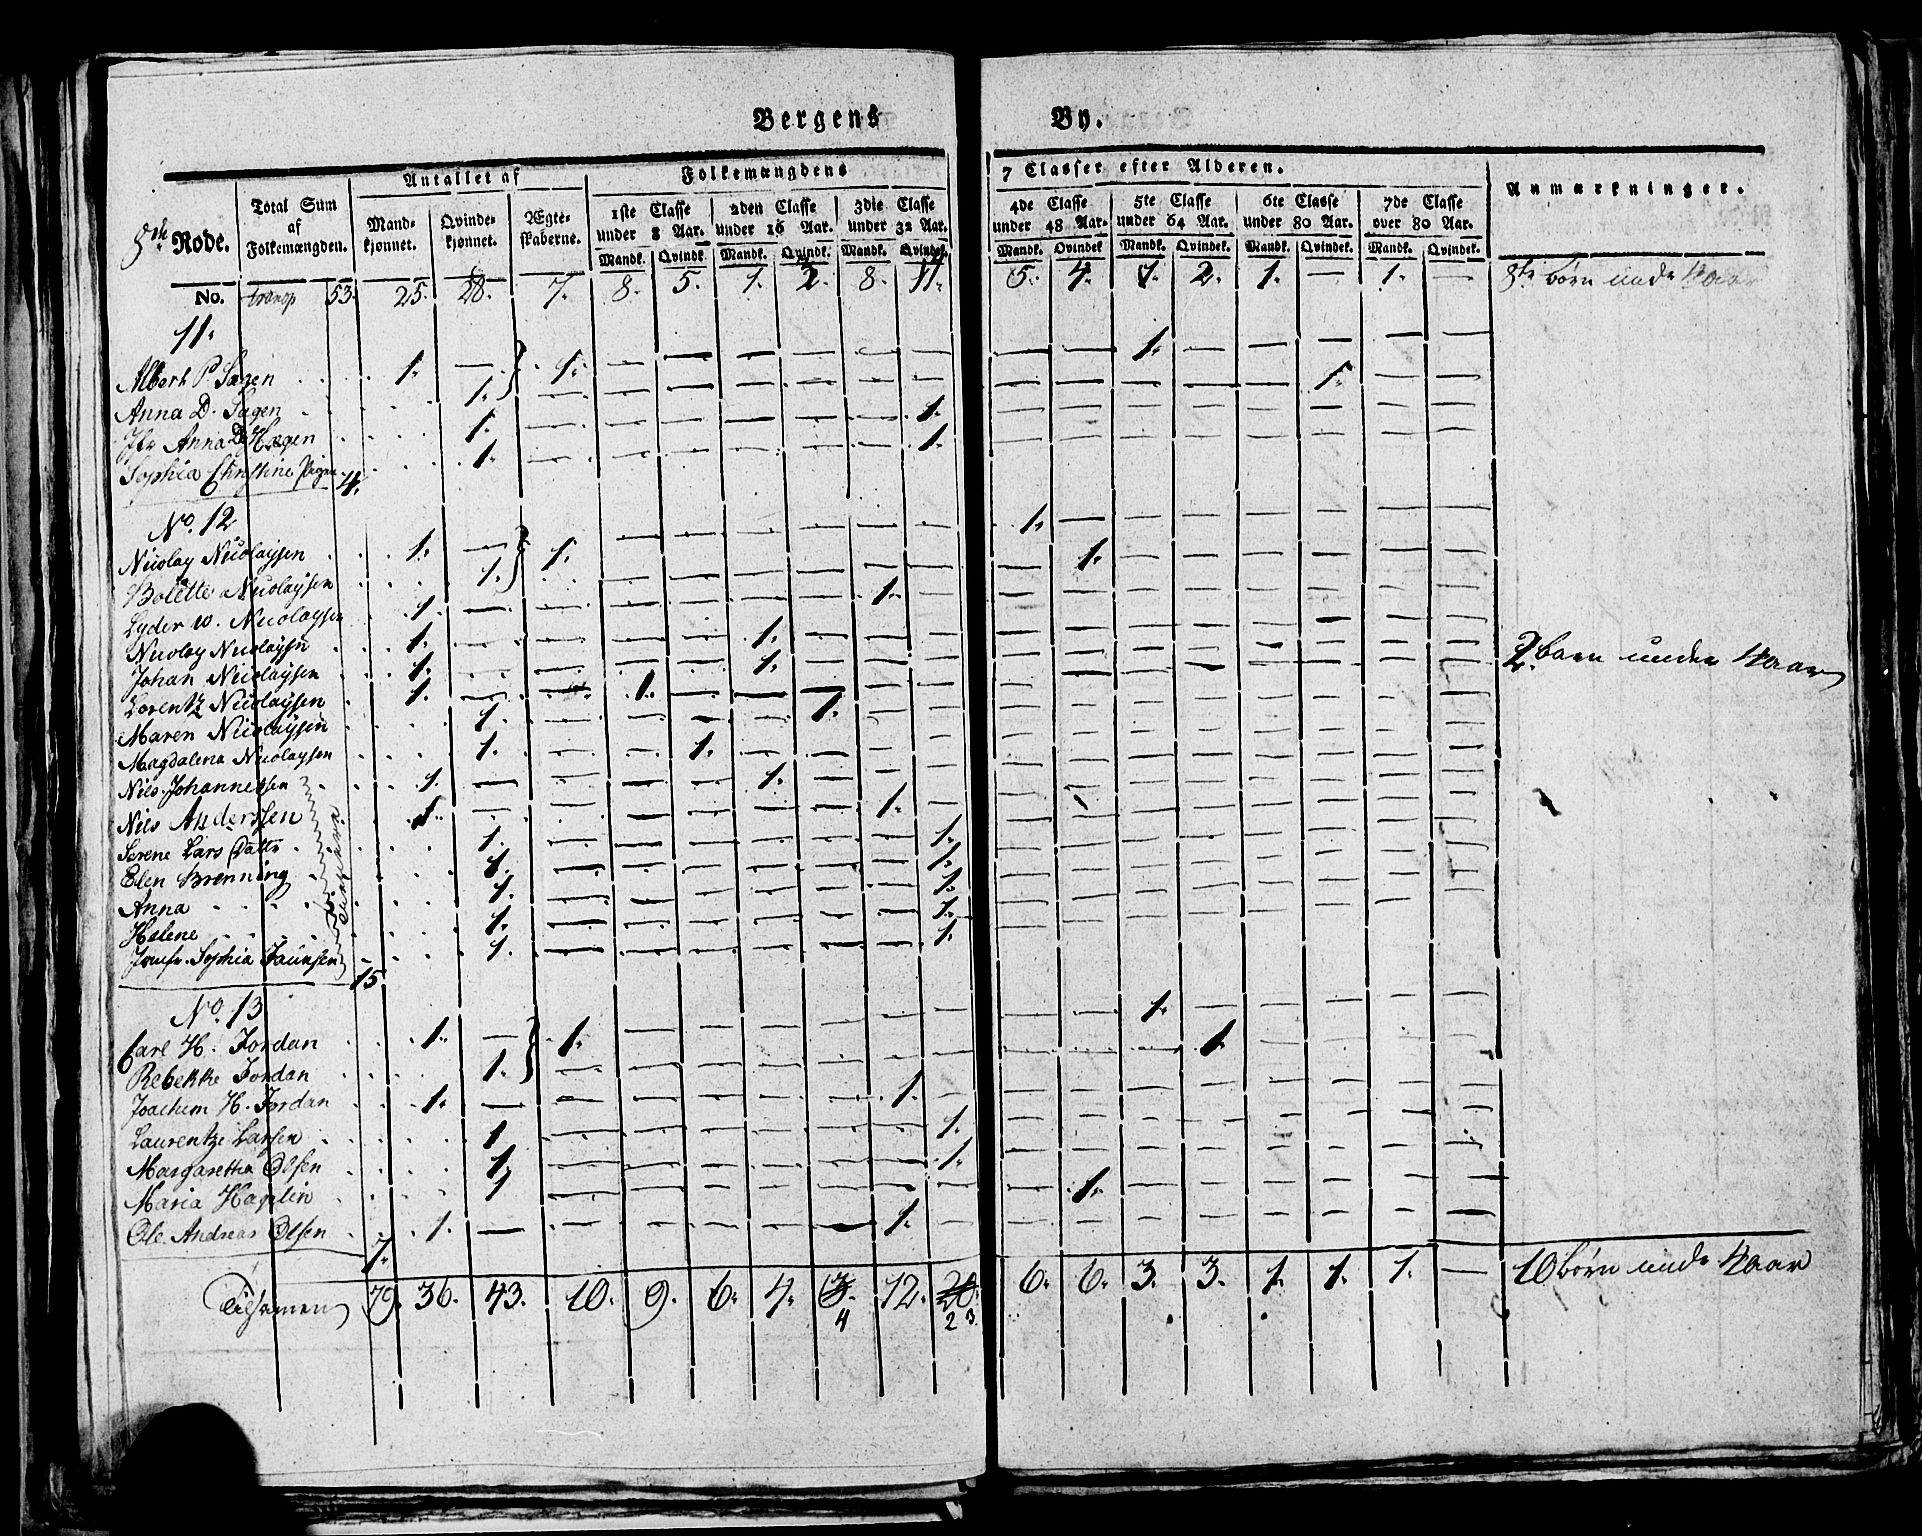 Bergens By.
8de Rode.
Total Sum af Folkemængden.
Antallet af
Mandkjønnet. Qvindekjønnet. Ægteskaberne.
Folkemængdens 7 Classer efter Alderen.
1ste Classe under 8 Aar. 2den Classe under 16 Aar. 3die Classe under 32 Aar. 4de Classe under 48 Aar. 5te Classe under 64 Aar. 6te Classe under 80 Aar. 7de Classe over 80 Aar.
Anmærkninger.
Mandk. Qvindk. Mandk. Qvindk. Mandk. Qvindek. Mandk. Qvindek. Mandk. Qvindek. Mandk. Qvindek. Mandk. Qvindek.
No. transp 53. 25. 28. 7. 8. 5. 1. 8. 11. 5. 4. 1. 2. 1. — 1. — børn unde 4 aar
11.
Albert P Sagen 1. — 1. — — — — — — — — 1. — — — — —
Anna D. Sagen 1. — — — — — — — — — — — 1. — —
Jfr Anna D Hagen 1. — — — — — — 1. — — — — — — — —
Sophia Christine Pige 4. 1. — — — — — — 1. — — — — — — — —
No. 12
Nicolay Nicolaysen 1. — 1. — — — — — — 1. — — — — — — —
Bolette Nicolaysen 1. — — — — — — — 1. — — — — — —
Lyder W. Nicolaysen 1. — — — — — — 1. — — — — — — — — —
Nicolay Nicolaysen 1. — — — — 1. — — — — — — — — — — —
Johan Nicolaysen 1. — — — — 1. — — — — — — — — — — — 2 børn under 4 aar
Lorentz Nicolaysen 1. — — 1. — — — — — — — — — — — — —
Maren Nicolaysen 1. — — — — 1. — — — — — — — — — —
Magdalena Nicolaysen 1. — — 1. — — — — — — — — — — — —
Nils Johannessen 1. — — — — 1. — — — — — — — — — — —
Nils Anderssen 1. — — — — — — 1. — — — — — — — — —
Serene Lars Dattr 1. — — — — — — 1. — — — — — — — —
Elen Brønning 1. — — — — — — 1. — — — — — — — —
Anna 1. — — — — — — 1. — — — — — — — —
Helene 1. — — — — — — 1. — — — — — — — —
Jomfr. Sophia 15 1. — — — — — — 1.
No. 13
Carl H. Jordan 1. — 1. — — — — — — — — 1. — — — — —
Rebekke Jordan 1. — — — — — — — — — 1. — — — —
Joachim H. Jordan 1. — — — — — — 1. — — — — — — — — —
Laurentze Larsen 1. — — — — — — 1. — — — — — — — —
Margaretha Olsen 1. — — — — — — 1. — — — — — — — —
Maria Hagelin 1 — — — — — — — — 1. — — — — — —
Ole Andreas Olsen 7. 1. — — — — — — 1. — — — — — — — — —
Tilsamen 79. 36. 43. 10. 9. 6. 4. 3. 12. 20. 6. 6. 3. 3. 1. 1. 1. — 10 børn unde 4 aar
4 23.